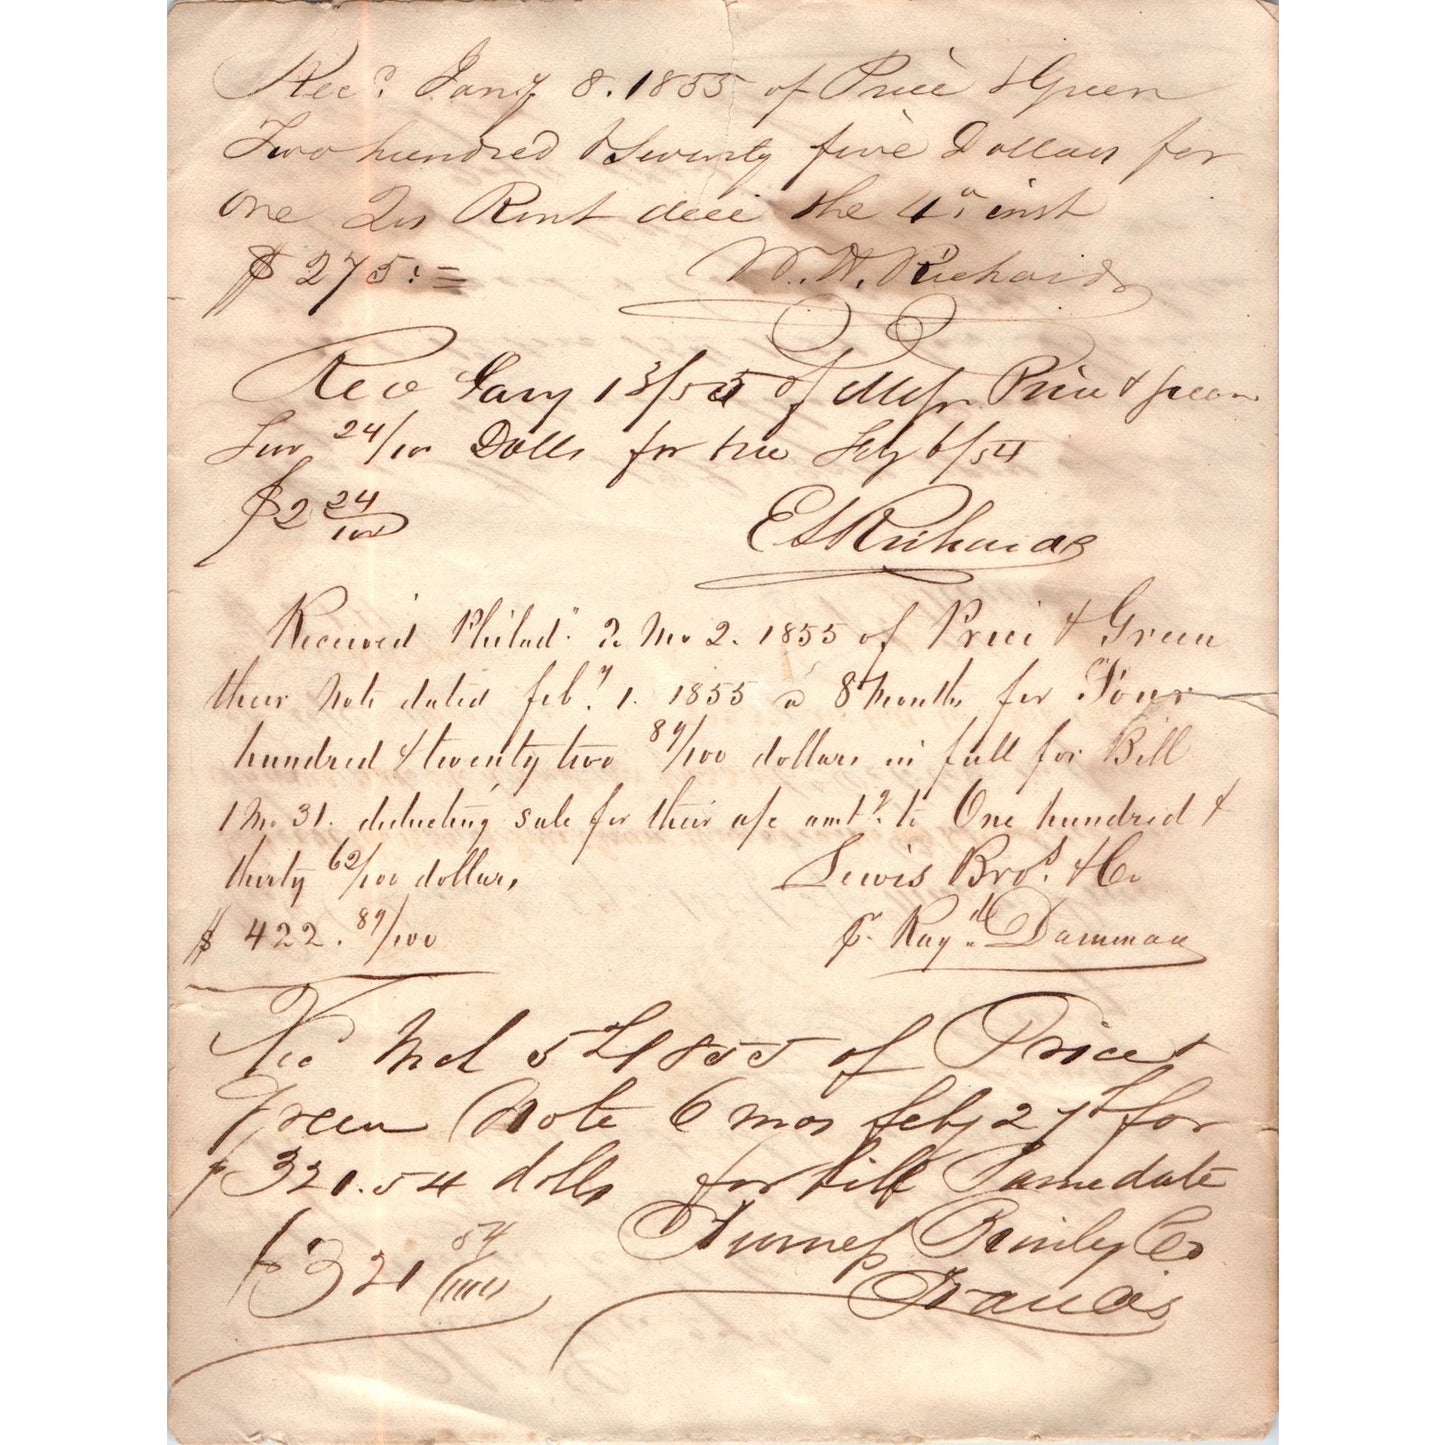 Recd. Jany 8. 1855 of Price & Green
Two hundred & Seventy five Dollars for
one Qrs Rent due the 4th inst
$ 275.=
W. H. Richards
Recd Jany 13/55 of Messrs Price & Green
Two 24/100 Dolls for Feby 6/54
$2 24/100
E S Richards
Received Philada. 2 Mo 2. 1855 of Price & Green
their Note dated Feby. 1. 1855 @ 8 Months for Four
hundred & twenty two 89/100 dollars in full for Bill
1 Mo 31. deducting sale for their a/c amtg. to One hundred &
thirty 62/100 dollars,
Lewis Bros. & Co
$ 422. 89/100
Damman
Rec Mch 5th 1855 of Price &
Green Note 6 mos feby 27th for
$321.54 dolls for bill Same date
$321 54/100
Furness Brinley Co
Francis